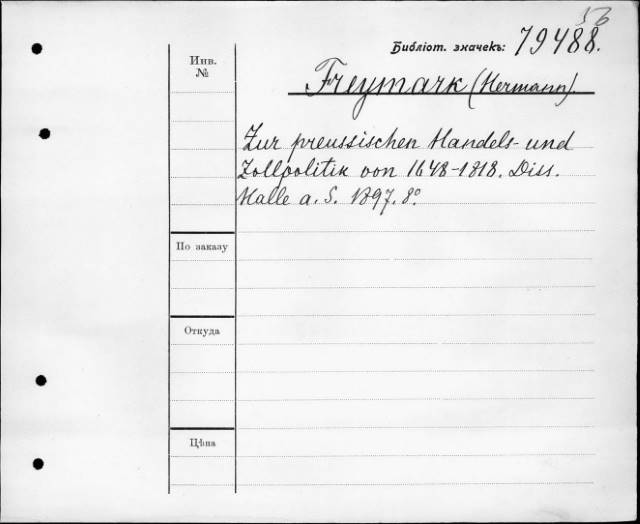 56
Библіот. значекъ: 79488.
Инв.
№
Freymark (Hermann).
Zur preussischen Handels- und
Zollpolitik von 1648-1818. Diss.
Halle a. S. 1897. 8°
По заказу
Откуда
Цѣна